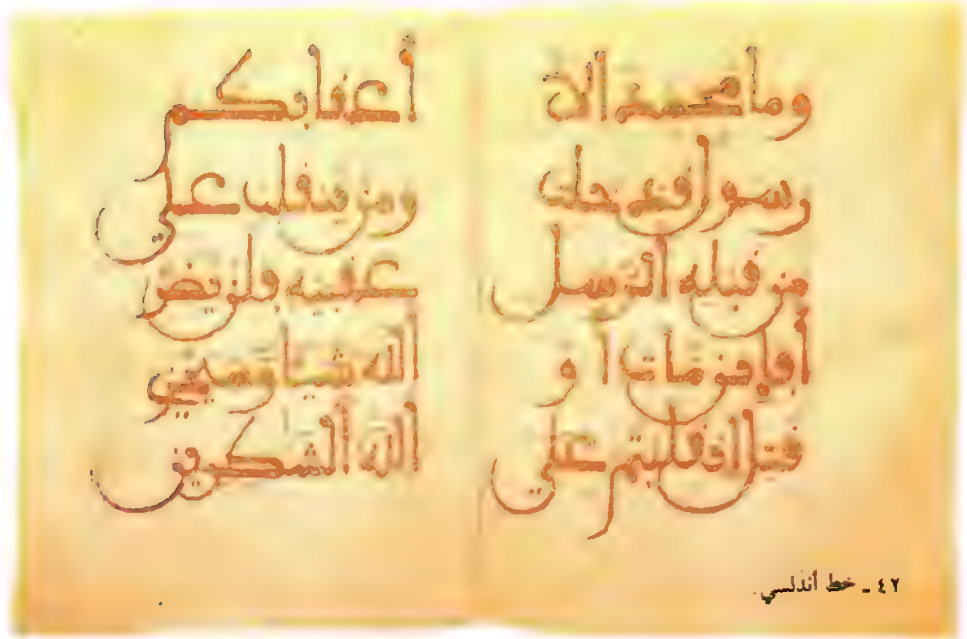 وما محمد إلا
رسول قد خلت
من قبله الرسل
أفإين مات أو
قتل انقلبتم على
أعقابكم
ومن ينقلب على
عقبيه فلن يضر
الله شيئا وسيجزي
الله الشكرين
٤٢ - خط أندلسي